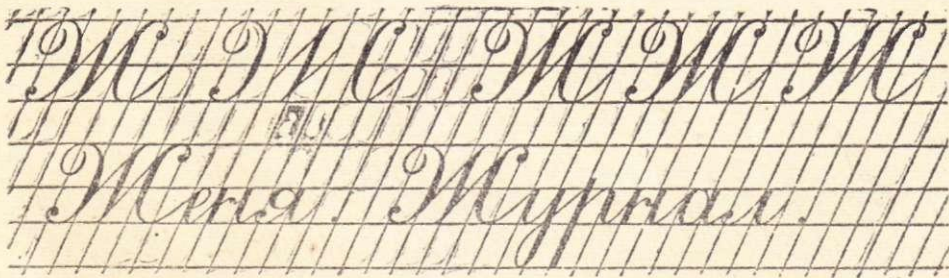 Ж Ж Ж Ж Ж
Женя. Журнал.